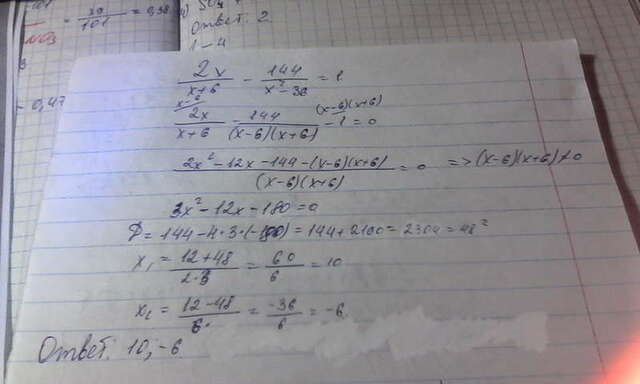 = 29/101 = 0,38
Ответ. 2
1-4
NO3
0,47
2x/(x+6) - 144/(x²-36) = 1
x-6 (x-6)(x+6)
2x/(x+6) - 144/((x-6)(x+6)) - 1 = 0
(2x²-12x-144-(x-6)(x+6))/((x-6)(x+6)) = 0 => (x-6)(x+6)≠0
3x²-12x-180=0
D=144-4·3·(-180)=144+2160=2304=48²
x₁ = (12+48)/(2·3) = 60/6 = 10
x₂ = (12-48)/6 = -36/6 = -6
Ответ. 10,-6